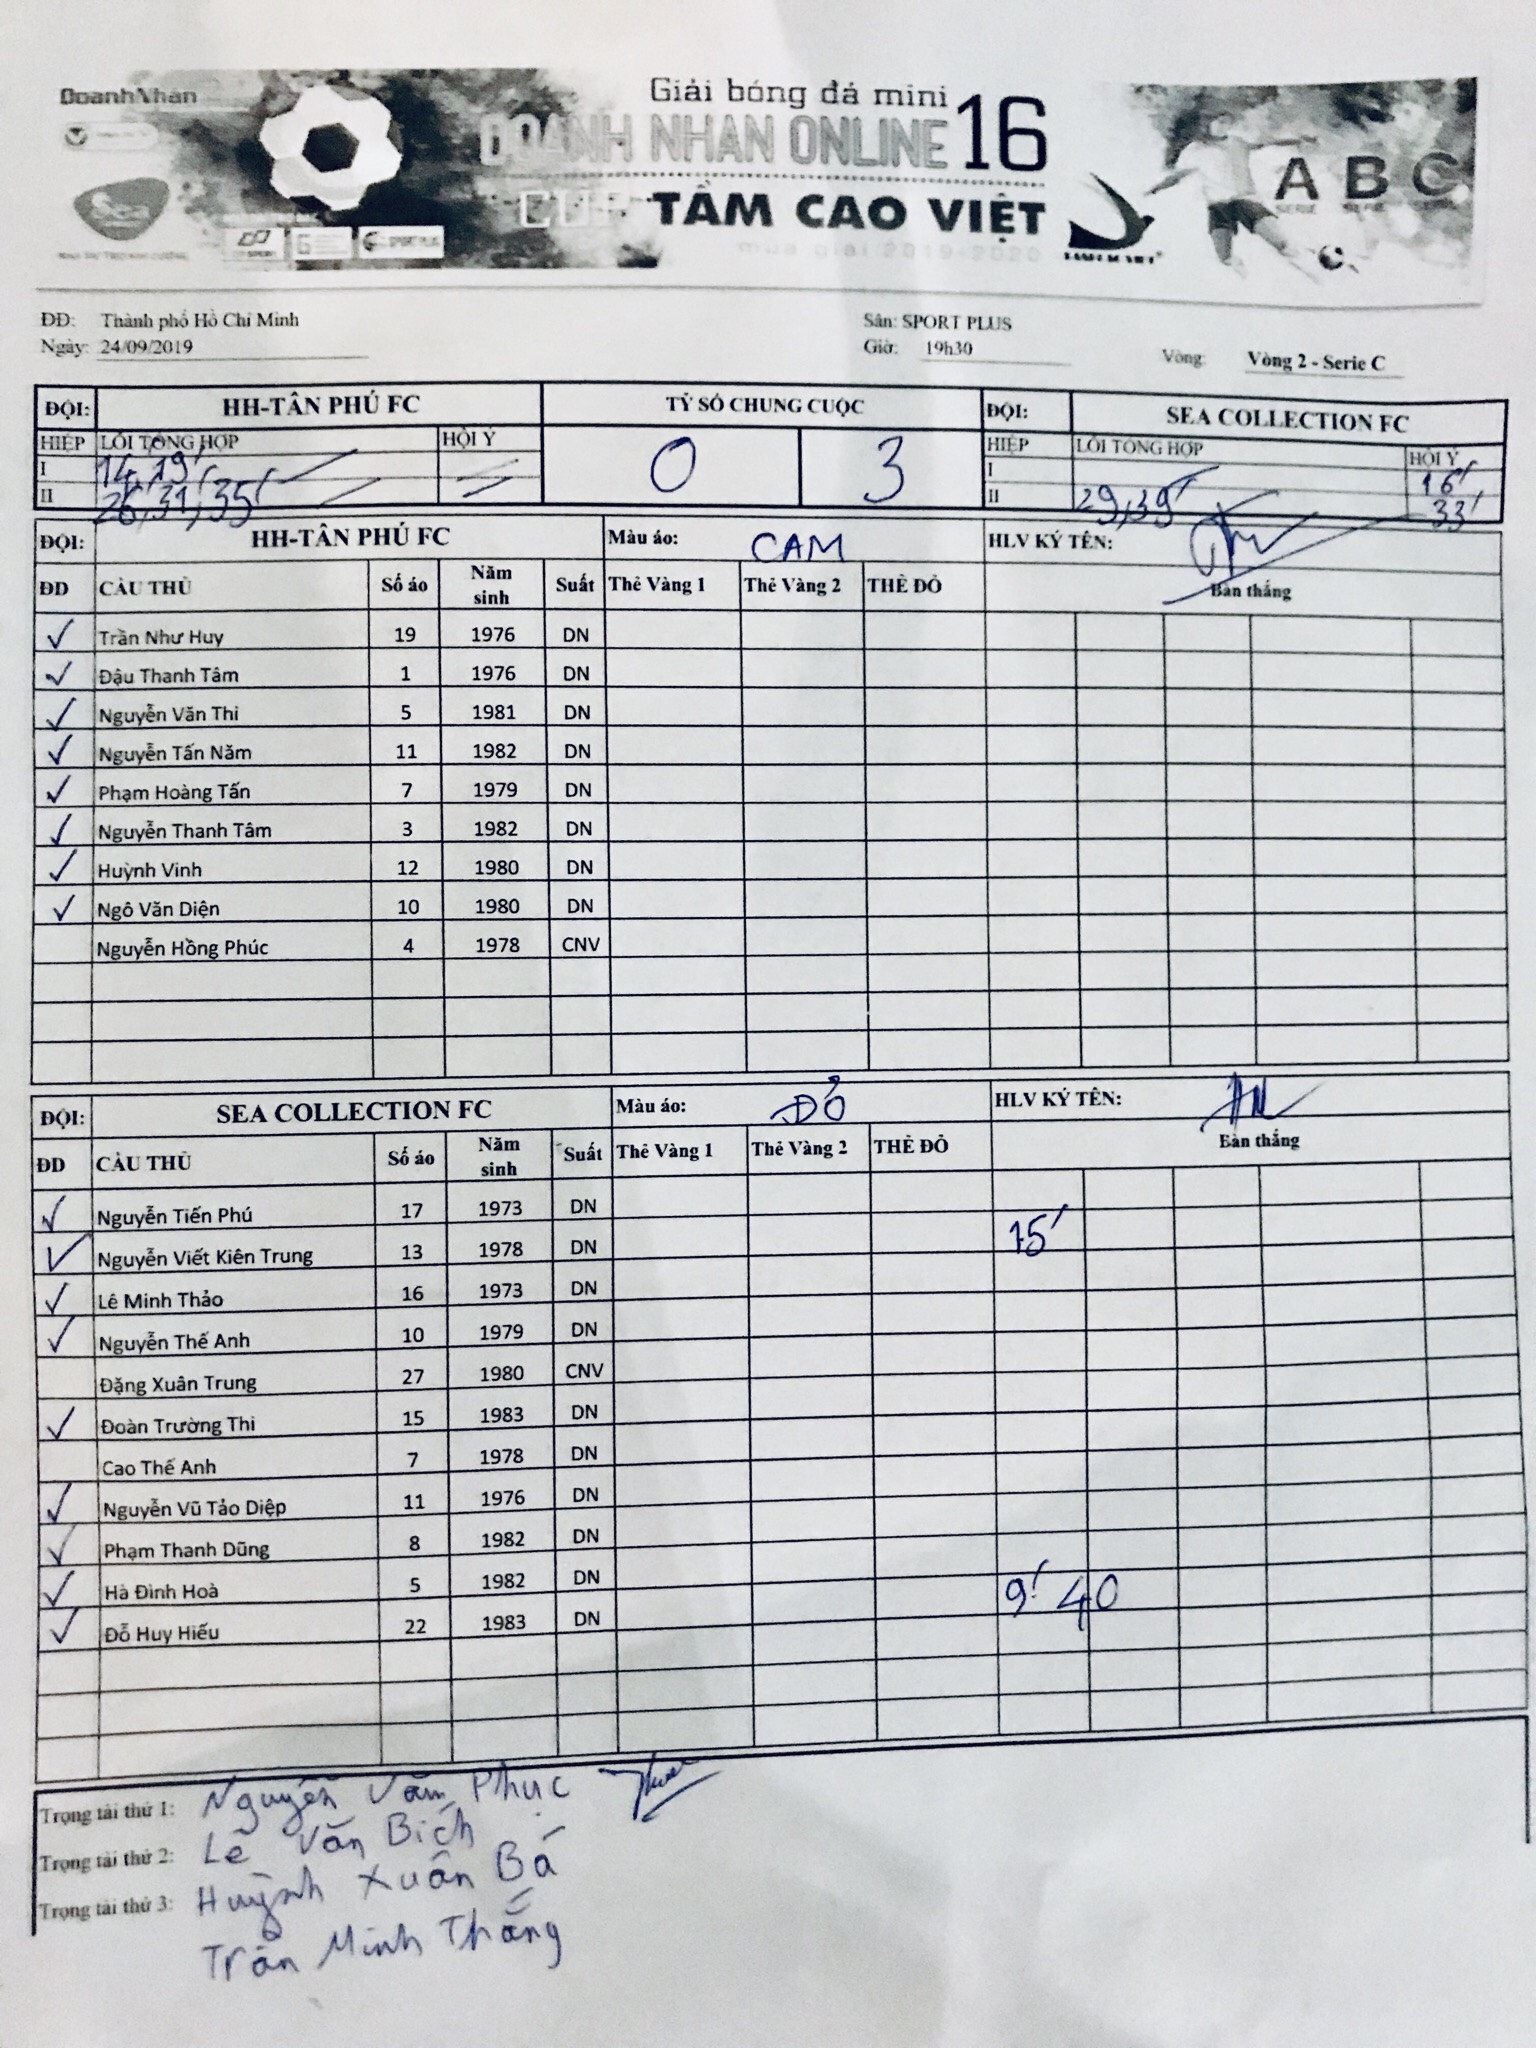 DoanhNhan
Giải bóng đá mini
DOANH NHAN ONLINE 16
CUP TẦM CAO VIỆT
mùa giải 2019-2020
A B C
SERIE SERIE
SPORT PLUS
ĐĐ: Thành phố Hồ Chí Minh Sân: SPORT PLUS
Ngày: 24/09/2019 Giờ: 19h30 Vòng: Vòng 2 - Serie C
ĐỘI: HH-TÂN PHÚ FC TỶ SỐ CHUNG CUỘC ĐỘI: SEA COLLECTION FC
HIỆP LỖI TỔNG HỢP HỘI Ý 0 3 HIỆP LỖI TỔNG HỢP HỘI Ý
I 14, 19' I 16'
II 26, 31, 35' II 29, 39' 33'
ĐỘI: HH-TÂN PHÚ FC Màu áo: CAM HLV KÝ TÊN:
ĐD CẦU THỦ Số áo Năm sinh Suất Thẻ Vàng 1 Thẻ Vàng 2 THẺ ĐỎ Bàn thắng
✓ Trần Như Huy 19 1976 DN
✓ Đậu Thanh Tâm 1 1976 DN
✓ Nguyễn Văn Thi 5 1981 DN
✓ Nguyễn Tấn Năm 11 1982 DN
✓ Phạm Hoàng Tấn 7 1979 DN
✓ Nguyễn Thanh Tâm 3 1982 DN
✓ Huỳnh Vinh 12 1980 DN
✓ Ngô Văn Diện 10 1980 DN
Nguyễn Hồng Phúc 4 1978 CNV
ĐỘI: SEA COLLECTION FC Màu áo: ĐỎ HLV KÝ TÊN:
ĐD CẦU THỦ Số áo Năm sinh Suất Thẻ Vàng 1 Thẻ Vàng 2 THẺ ĐỎ Bàn thắng
✓ Nguyễn Tiến Phú 17 1973 DN
✓ Nguyễn Viết Kiên Trung 13 1978 DN 15'
✓ Lê Minh Thảo 16 1973 DN
✓ Nguyễn Thế Anh 10 1979 DN
Đặng Xuân Trung 27 1980 CNV
✓ Đoàn Trường Thi 15 1983 DN
Cao Thế Anh 7 1978 DN
✓ Nguyễn Vũ Tảo Diệp 11 1976 DN
✓ Phạm Thanh Dũng 8 1982 DN
✓ Hà Đình Hoà 5 1982 DN 9' 40
✓ Đỗ Huy Hiếu 22 1983 DN
Trọng tài thứ 1: Nguyễn Văn Phục
Trọng tài thứ 2: Lê Văn Bích
Trọng tài thứ 3: Huỳnh Xuân Bá
Trần Minh Thắng